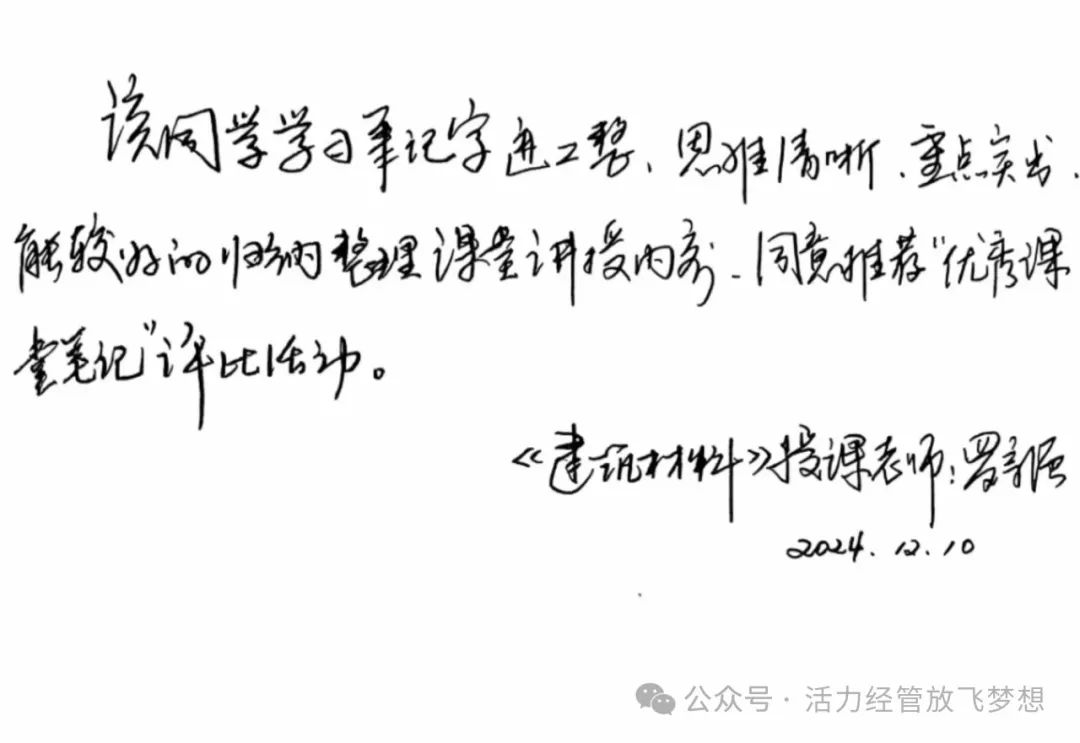 该同学学习笔记字迹工整、思维清晰、重点突出、
能较好的归纳整理课堂讲授内容、同意推荐“优秀课
堂笔记”评比活动。
《建筑材料》授课老师：罗
2024.12.10
公众号 · 活力经管放飞梦想